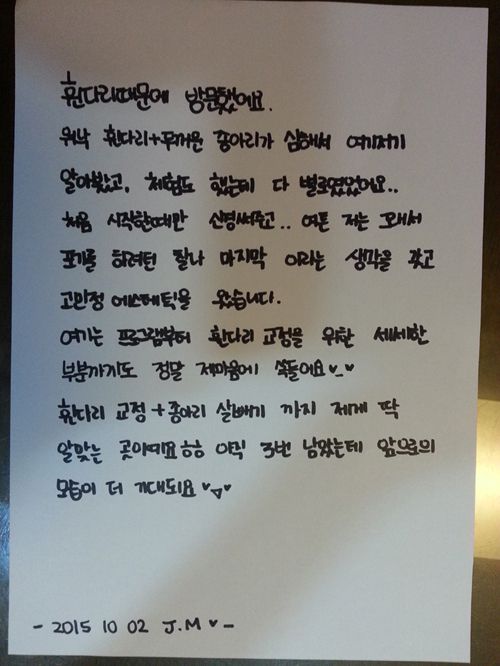 휜다리때문에 방문했어요.
워낙 휜다리+두꺼운 종아리가 심해서 여기저기
알아봤고, 체험도 했는데 다 별로였었어요..
처음 시작한때만 신경써주고.. 여튼 저는 그래서
포기를 하려던 찰나 마지막 이라는 생각을 갖고
고만정 에스테틱을 왔습니다.
여기는 프로그램부터 휜다리 교정을 위한 세세한
부분까지도 정말 제마음에 쏙들어요♥_♥
휜다리 교정 + 종아리 살빼기 까지 제게 딱
알맞는 곳이에요ㅎㅎ 아직 3번 남았는데 앞으로의
모습이 더 기대되요 ♥▽♥
- 2015 10 02 J.M ♥ -